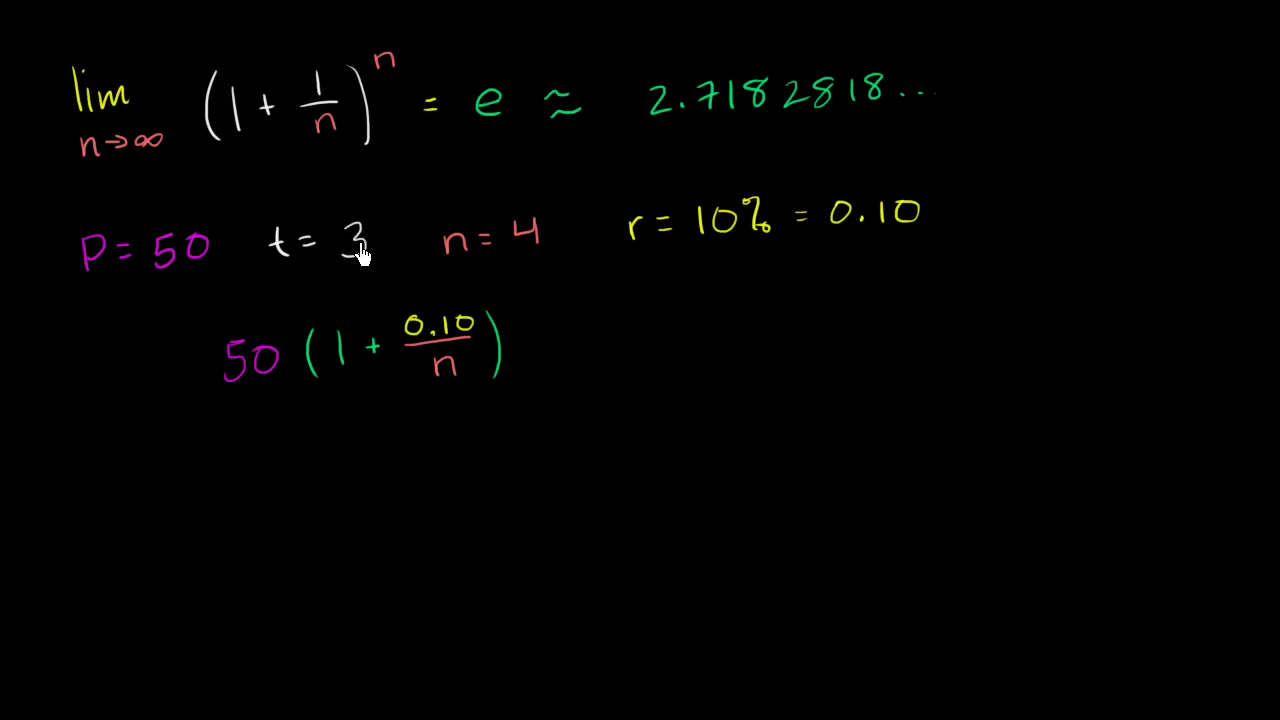 lim n→∞ (1 + 1/n)^n = e ≈ 2.7182818...
P = 50 t = 3 n = 4 r = 10% = 0.10
50 (1 + 0.10/n)